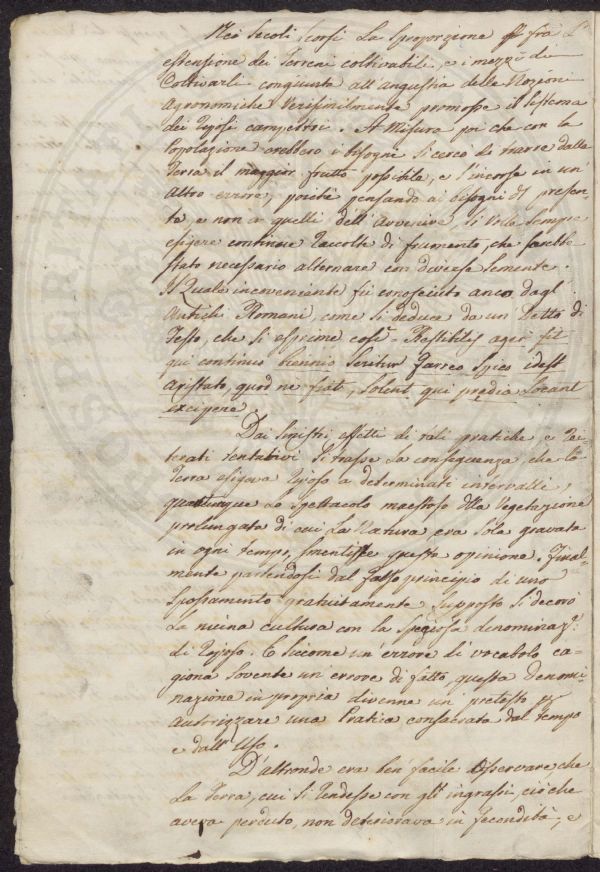 Nei Secoli scorsi La Sproporzione fra L'
estensione dei Terreni coltivabili, e i mezzi di
Coltivarli congiunta all'angustia delle Nozioni
Agronomiche verisimilmente promosse il Sistema
dei Riposi campestri. A Misura poi che con la
Popolazione crebbero i bisogni si cercò di trarre dalla
Terra il maggior frutto possibile, e s'incorse in un'
altro errore, poichè pensando ai bisogni di presen-
te, e non a quelli dell'Avvenire, si volle sempre
esigere continue raccolte di frumento, che sarebbe
stato necessario alternare con diverse Semente.
Il Quale inconveniente fù conosciuto anco dagl'
Antichi Romani, come si deduce da un detto di
Festo, che si esprime così - Restibilis ager fit
qui continuo biennio Seritur farreo Spico idest
aristato, quod ne fiat, solent qui predia Locant
excipere.
Dai Sinistri effetti di tali pratiche, e Rei-
terati tentativi si trasse la conseguenza, che la
Terra esigeva riposo a determinati intervalli,
quantunque Lo Spettacolo maestoso della Vegetazione
prolungata di cui La Natura era Sola gravata
in ogni tempo, smentisse questa opinione. Final-
mente partendosi dal falso principio di uno
Spossamento gratuitamente supposto si decorò
La niuna cultura con la Speciosa denominaz.e
di riposo. E siccome un'errore di vocabolo ca-
giona sovente un'errore di fatto, questa denomi-
nazione impropria divenne un pretesto per
autorizzare una Pratica consacrata dal tempo
e dall'Uso.
D'altronde era ben facile osservare, che
La Terra, cui si rendesse con gli ingrassi, ciò che
aveva perduto, non deteriorava in fecondità, e